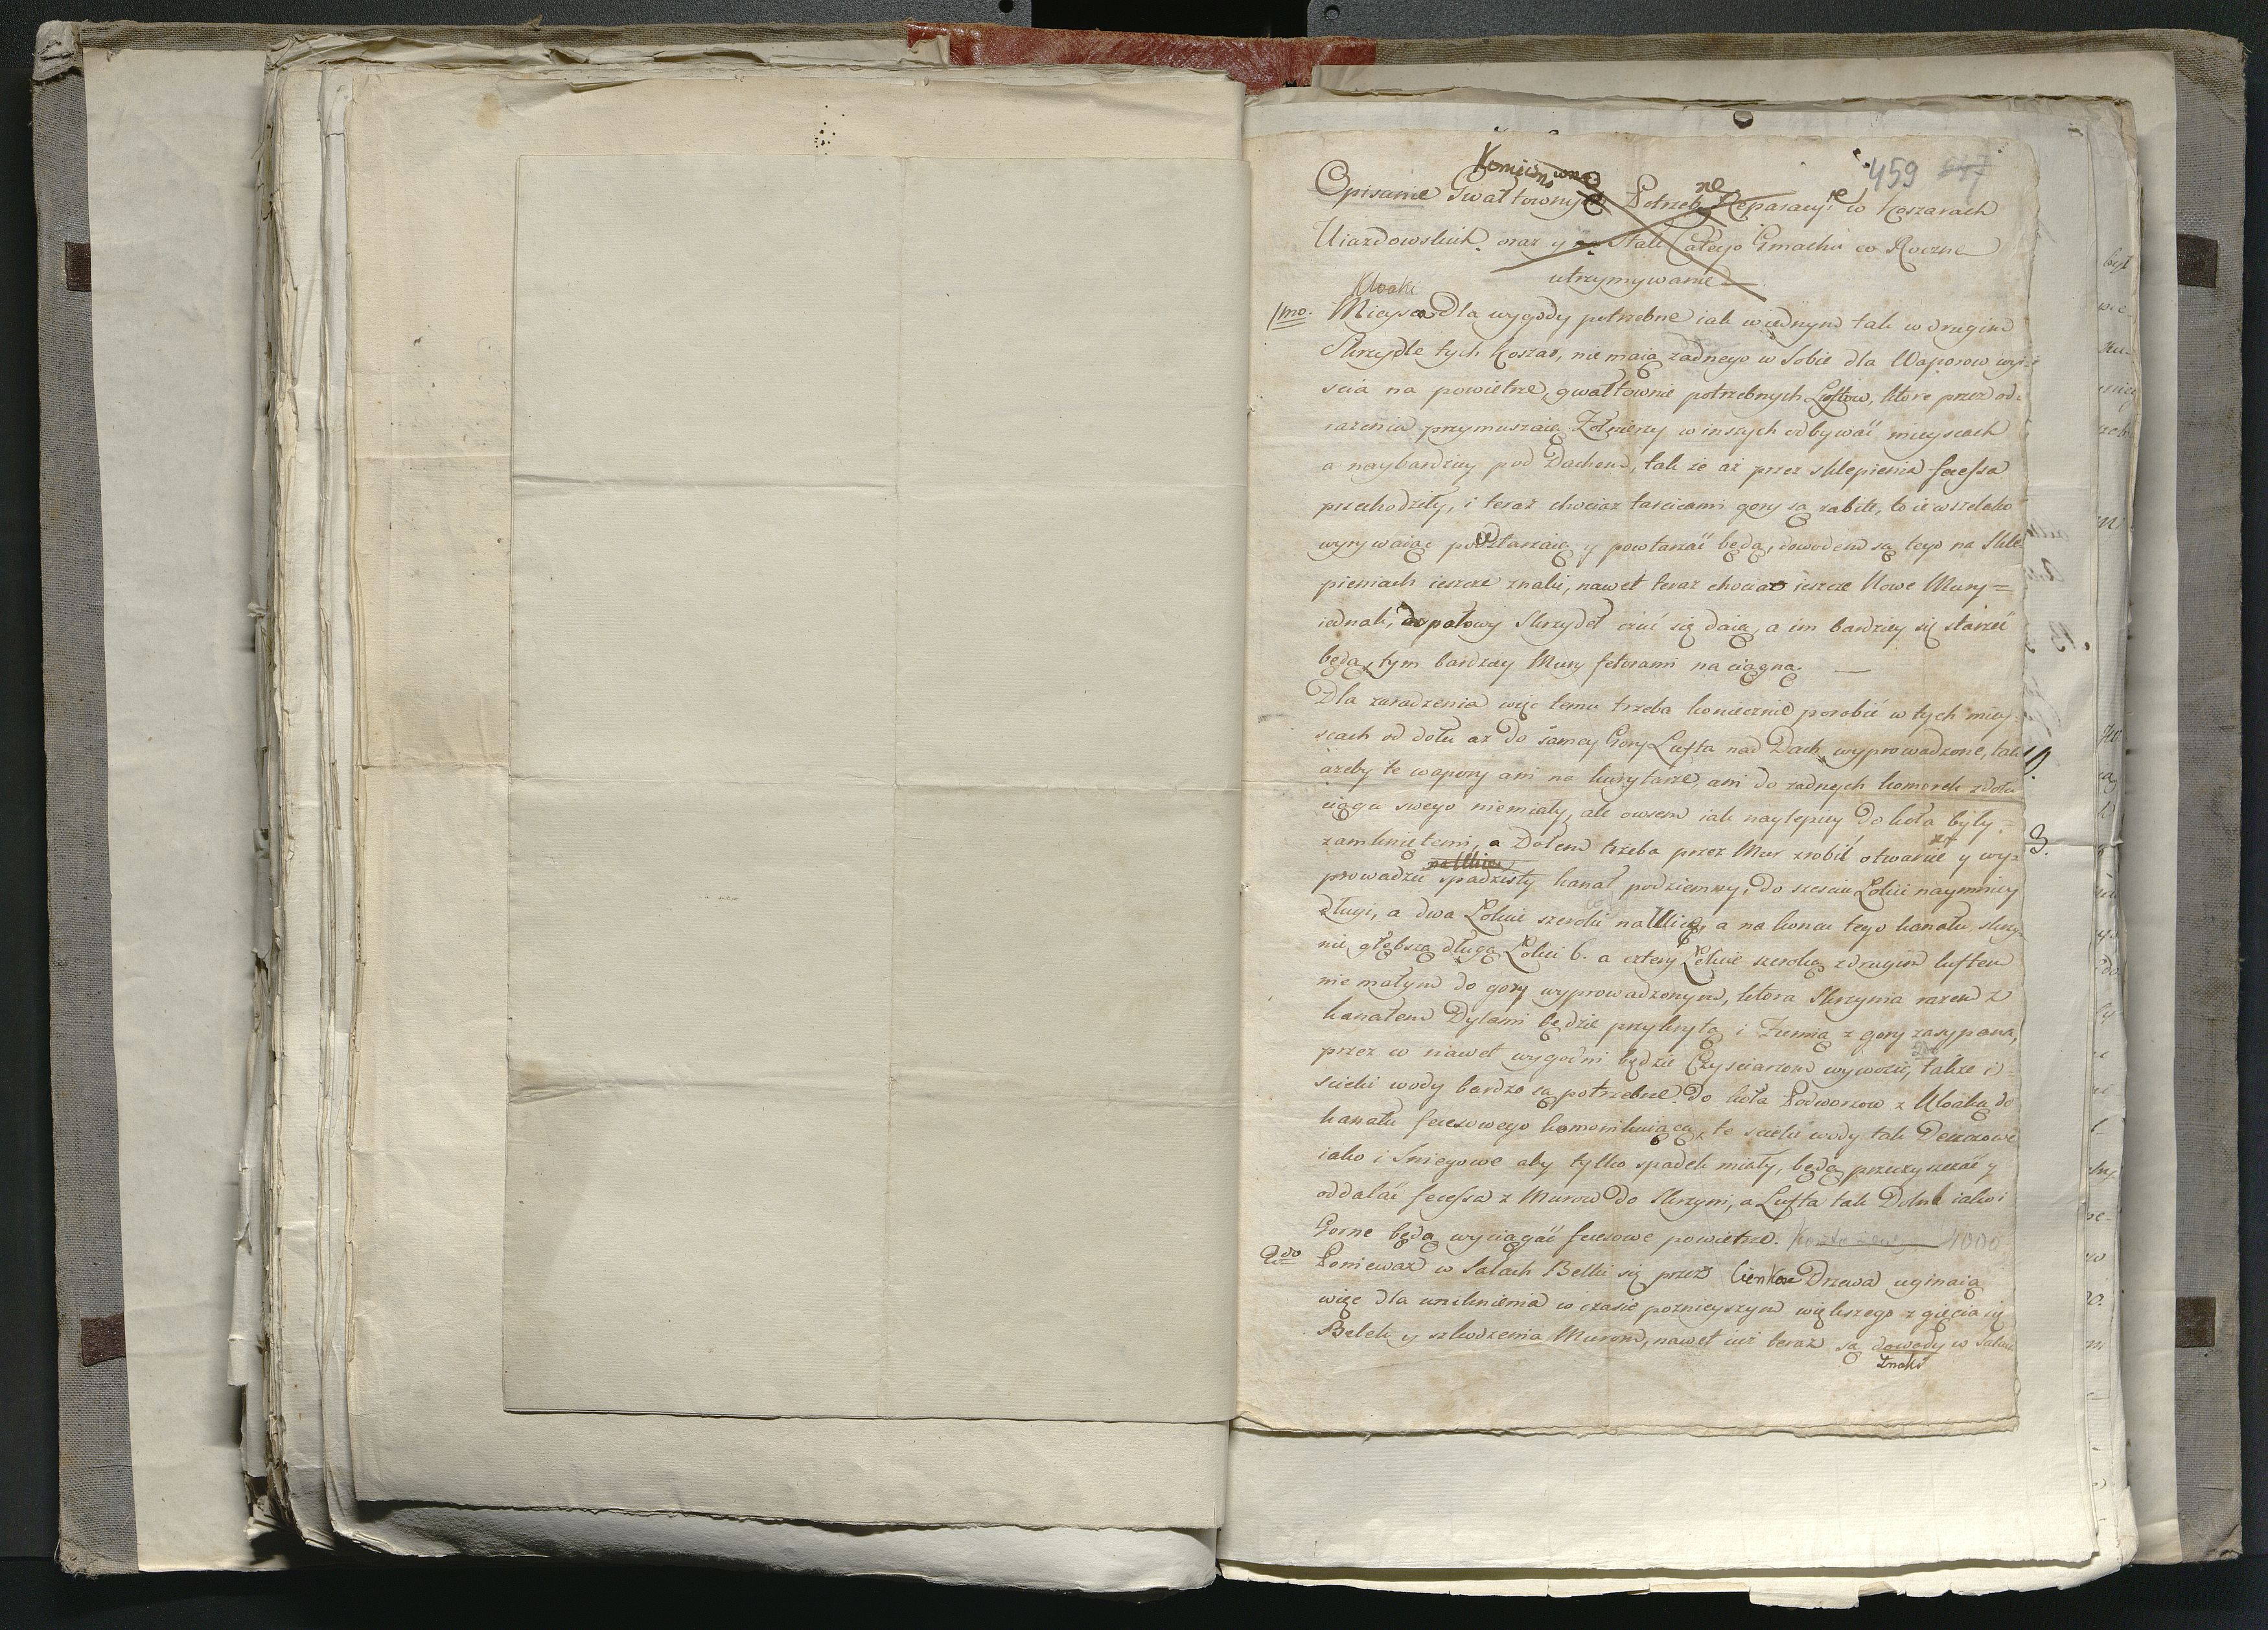 459 647
Koniecznie
Opisanie Gwałtownych Potrzeb Reparacyi w Koszarach
Uiazdowskich oraz y na stałe Całego Gmachu co Roczne
utrzymywanie
Kloaki
1mo. Mieysca Dla wygody potrzebne iak w iednym tak w drugim
Skrzydle tych Koszar, nie maią żadnego w sobie dla Waporow wyi-
scia na powietrze, gwałtownie potrzebnych Luftow, ktore przez od-
razenia przymuszaią Zołnierzy w inszych odbywać mieyscach
a naybardziey pod Dachem, tak że aż przez sklepienia fecessa
przechodziły, i teraz chociaz tarcicami gory są zabite, to ie wszelako
wyrywaiąc powtarzaią y powtarzać będą, dowodem są tego na Skle-
pieniach ieszcze znaki, nawet teraz chociaz ieszcze Nowe Mury =
iednak, do połowy Skrzydeł czuć się daią, a im bardziey się starzeć
będą, tym bardziey Mury fetorami naciągną. —
Dla zaradzenia więc temu trzeba koniecznie porobić w tych miey-
scach od dołu aż do samey Gory Lufta nad Dach wyprowadzone, tak
ażeby te wapory ani na kurytarze, ani do żadnych komorek z dołu
ciągu swego niemiały, ale owszem iak naylepiey do koła były
zamkniętemi, a Dołem trzeba przez Mur zrobić otwarcie y wy-
na Ulicę
prowadzić spadzisty kanał podziemny, do szesciu Łokci naymniey
długi, a dwa Łokcie szeroki na Ulicę, a na koncu tego kanału skrzy-
nię głębszą długą Łokci 6. a cztery Łokcie szeroką z drugim luftem
nie małym do gory wyprowadzonym, ktora Skrzynia razem z
kanałem Dylami będzie przykryta i Ziemią z gory zasypana,
przez co nawet wygodni będzie Czyściarzom wywozić, także i
scieki wody bardzo są potrzebne do koła Podworzow z Kloaką do
kanału fecesowego komonikuiące, te scieki wody tak Deszczowe
iako i Sniegowe aby tylko spadek miały, będą przeczyszczać y
oddalać fecessa z Murow do Skrzyni, a Lufta tak Dolne iako i
Gorne będą wyciągać fecesowe powietrze.
2do Ponieważ w Salach Belki się przez Cienkie Drzewa uginaią
więc dla uniknienia w czasie poznieyszym większego zgięcia się
Belek y szkodzenia Murom, nawet iuż teraz są dowody w Salach
znaki